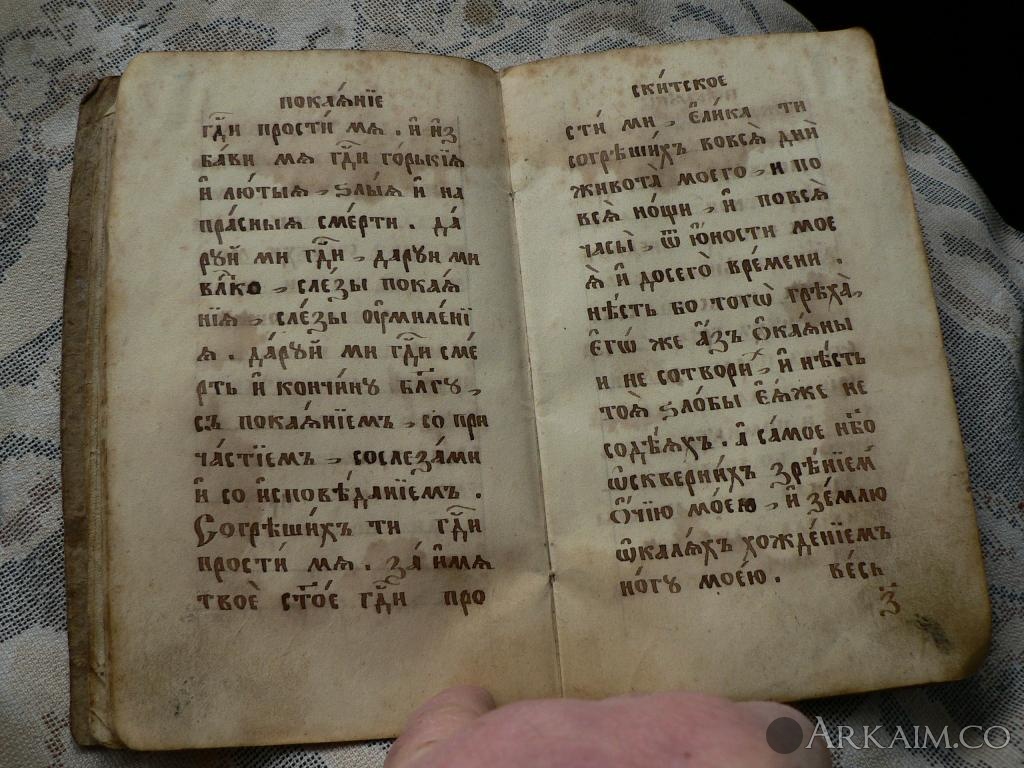 покаѧ́нїе
гдⷭ҇и прости́ мѧ . и҆ и҆з
ба́ви мѧ гдⷭ҇и го́рькїѧ
и҆ лю́тыѧ , ѕлы́ѧ и҆ на
пра́сныѧ сме́рти . да́
рꙋй ми гдⷭ҇и , дарꙋи ми
влⷣко , сле́зы покаѧ́
нїѧ , сле́зы ᲂу҆миле́нї
ѧ . да́рꙋй ми гдⷭ҇и сме́
рть и҆ кончи́нꙋ блгⷢ҇ꙋ ,
съ покаѧ́нїемъ , со при
ча́стїемъ , со слеза́ми
и҆ со и҆сповѣ́данїемъ .
Согрѣши́хъ ти гдⷭ҇и
прости́ мѧ . за́ и҆мѧ
твоѐ ст҃о́е гдⷭ҇и про
ски́тское
сти́ ми , є҆ли́ка ти
согрѣши́хъ во всѧ̀ дни̑
живота̀ моего̀ , и по
всѧ̀ но́щи , и҆ по всѧ̀
часы̀ , ѿ ю҆́ности мое
ѧ̀ и҆ до сего̀ вре́мени .
нѣ́сть бо тогѡ̀ грѣха̀ ,
є҆гѡ́ же а҆́зъ ѻ҆каѧ́ны
и не сотвори̑ , и҆ нѣ́сть
тоѧ̀ ѕло́бы є҆ѧ́же не
содѣ́ѧхъ . а҆ са́мое нб҃о
ѡ҆скверни́хъ зрѣ́нїем̾
ѻ҆́чїю мое́ю , и҆ зе́млю
ѡ҆калѧ́хъ хожде́нїемъ
но́гꙋ мое́ю . ве́сь
з҃
ARKAIM.CO